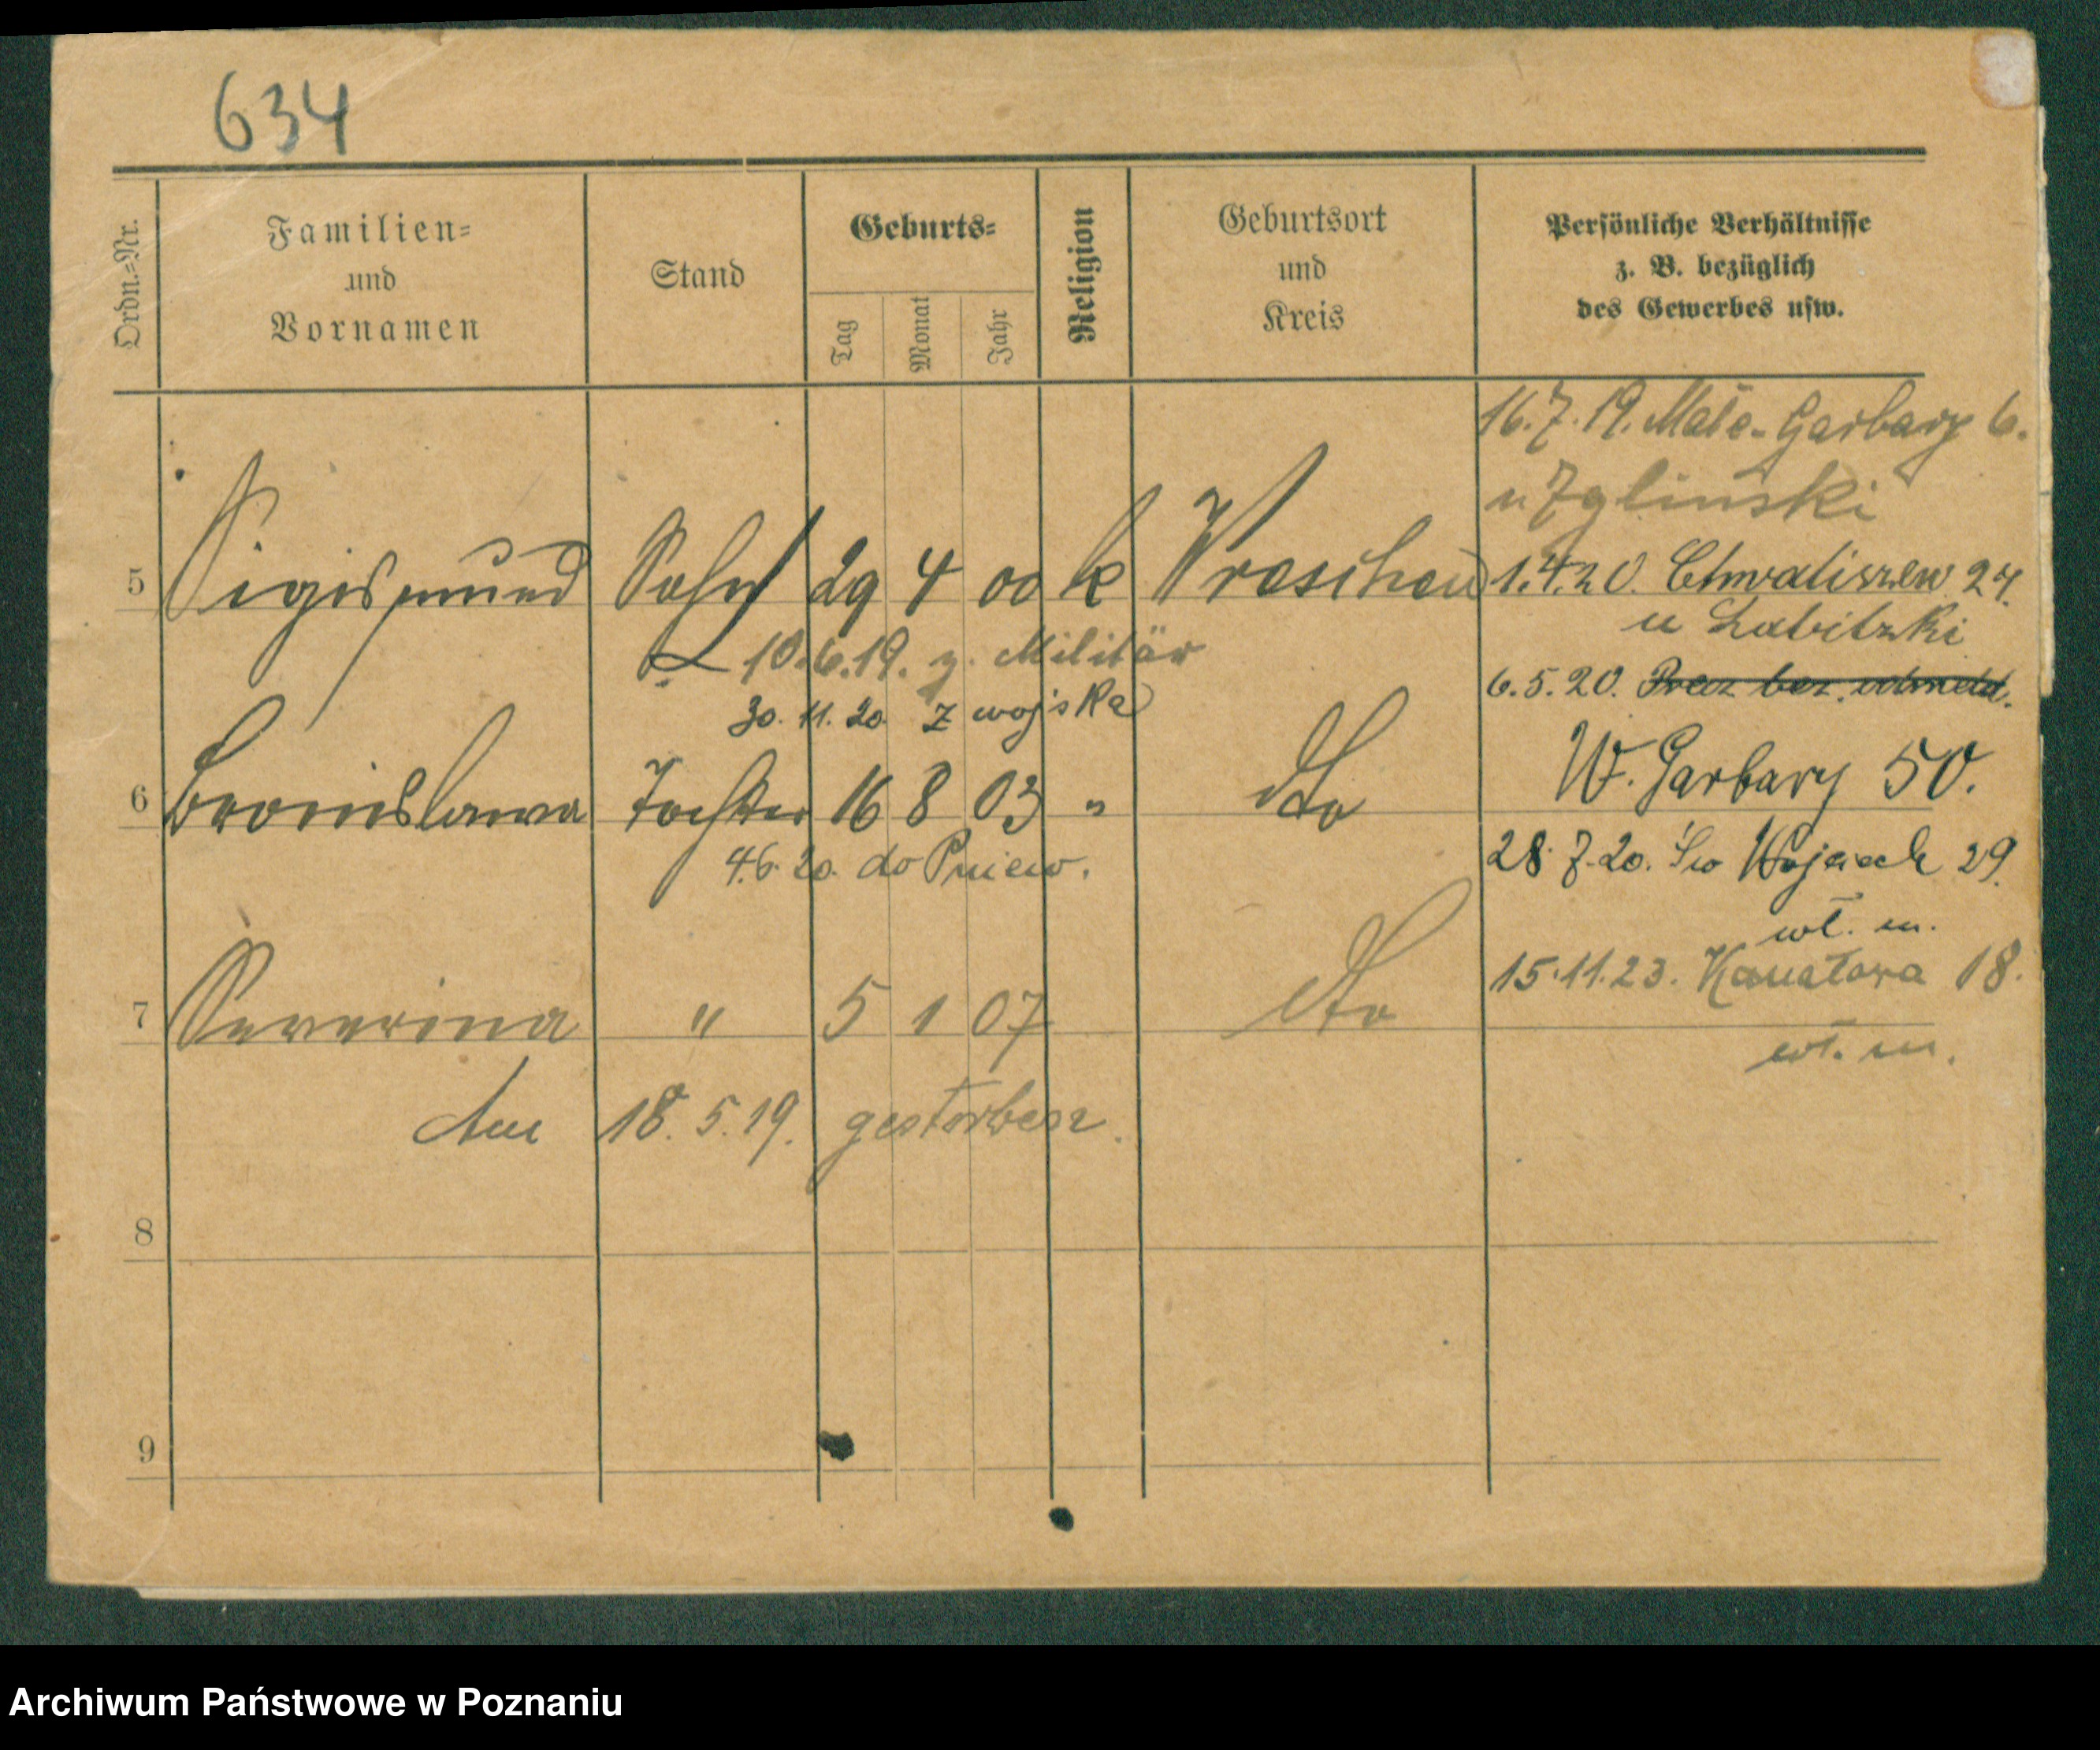 634
Ordn.=Nr.
Familien=
und
Vornamen
Stand
Geburts=
Tag
Monat
Jahr
Religion
Geburtsort
und
Kreis
Persönliche Verhältnisse
z. B. bezüglich
des Gewerbes usw.
16.7.19. Małe-Garbary 6.
5 Sigismund Sohn 29 4 00 k Wreschen 1.4.20. Chwaliszew 24.
10.6.19. z. Militär
30.11.20 z wojska
6.5.20.
W. Garbary 50.
6 Bronislawa Tochter 16 8 03 " dto
4.6.20. do Pniew.
28.7.20. Św Wojciech 29.
wł. m.
15.11.23. 18.
7 Severina " 5 1 07 dto
wł. m.
Am 18.5.19. gestorben.
8
9
Archiwum Państwowe w Poznaniu